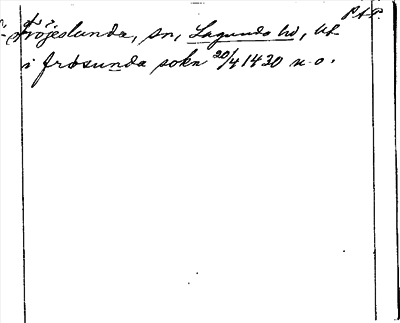 P.A.P.
Fröjeslunda, sn, Lagunda hd, Upl.
i frösunda sokn 20/4 1430 u.o.